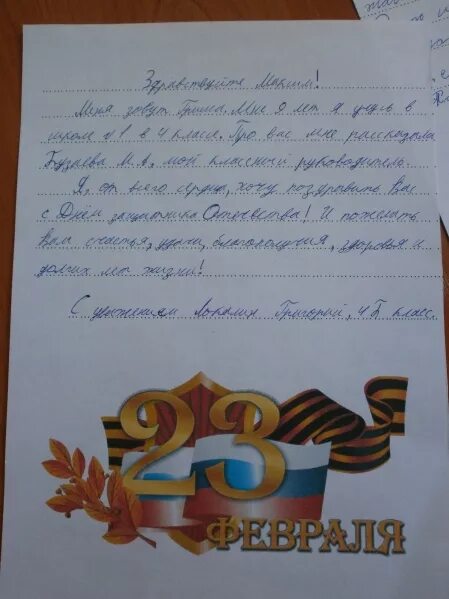 Здравствуйте Максим!
Меня зовут Гриша. Мне 9 лет я учусь в
школе №1 в 4 классе. Про вас мне рассказала
Бузаева М. А, мой классный руководитель.
Я, от всего сердца, хочу поздравить Вас
с Днём защитника Отечества! И пожелать
вам счастья, удачи, благополучия, здоровья и
долгих лет жизни!
С уважением Григорий, 4Б класс.
23
ФЕВРАЛЯ